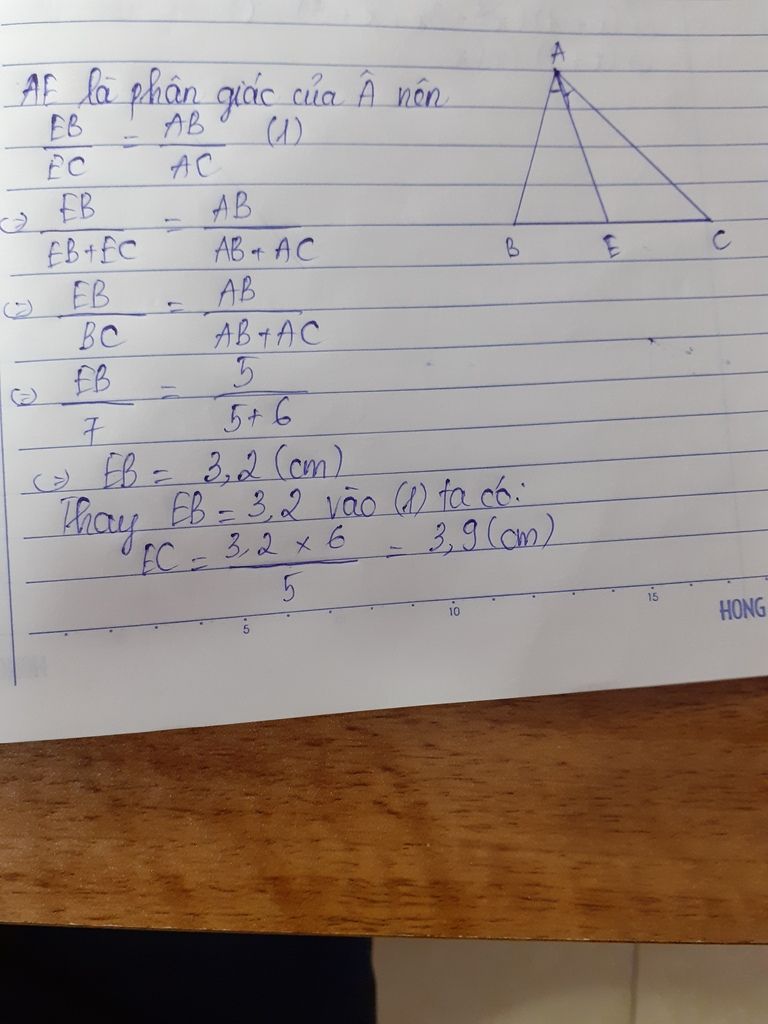 AE là phân giác của Â nên
EB/EC = AB/AC (1)
<=> EB/(EB+EC) = AB/(AB+AC)
<=> EB/BC = AB/(AB+AC)
<=> EB/7 = 5/(5+6)
<=> EB = 3,2 (cm)
Thay EB = 3,2 vào (1) ta có:
EC = (3,2 x 6)/5 = 3,9 (cm)
A
B E C
5 10 15
HONG